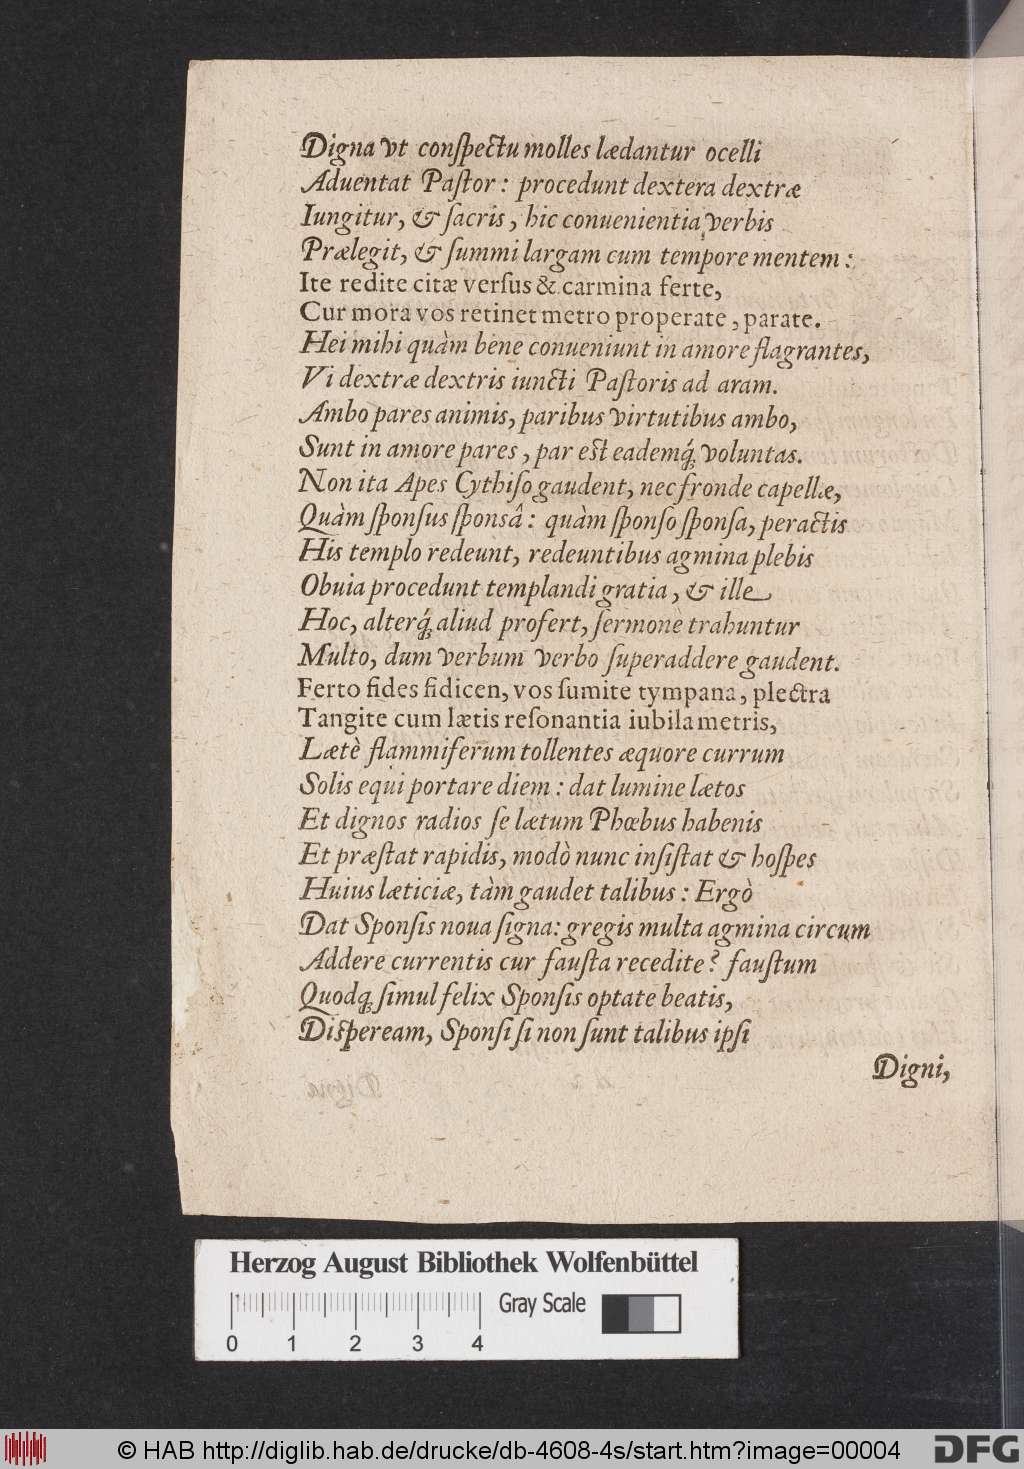 Digna vt conſpectu molles lædantur ocelli
Aduentat Paſtor: procedunt dextera dextræ
Iungitur, & ſacris, hic conuenientia verbis
Prælegit, & ſummi largam cum tempore mentem:
Ite redite citæ verſus & carmina ferte,
Cur mora vos retinet metro properate, parate.
Hei mihi quàm bene conueniunt in amore flagrantes,
Vi dextræ dextris iuncti Paſtoris ad aram.
Ambo pares animis, paribus virtutibus ambo,
Sunt in amore pares, par est eademq́; voluntas.
Non ita Apes Cythiſo gaudent, nec fronde capellæ,
Quàm ſponſus ſponsâ: quàm ſponſo ſponſa, peractis
His templo redeunt, redeuntibus agmina plebis
Obuia procedunt templandi gratia, & ille
Hoc, alterq́; aliud profert, ſermone trahuntur
Multo, dum verbum verbo ſuperaddere gaudent.
Ferto fides fidicen, vos ſumite tympana, plectra
Tangite cum lætis reſonantia iubila metris,
Lætè flammiferum tollentes æquore currum
Solis equi portare diem: dat lumine lætos
Et dignos radios ſe lætum Phœbus habenis
Et præſtat rapidis, modò nunc inſiſtat & hoſpes
Huius læticiæ, tàm gaudet talibus: Ergò
Dat Sponſis noua ſigna: gregis multa agmina circum
Addere currentis cur fauſta recedite? fauſtum
Quodq; ſimul felix Sponſis optate beatis,
Diſpeream, Sponſi ſi non ſunt talibus ipſi
Digni,
Herzog August Bibliothek Wolfenbüttel
Gray Scale
0 1 2 3 4
© HAB http://diglib.hab.de/drucke/db-4608-4s/start.htm?image=00004
DFG